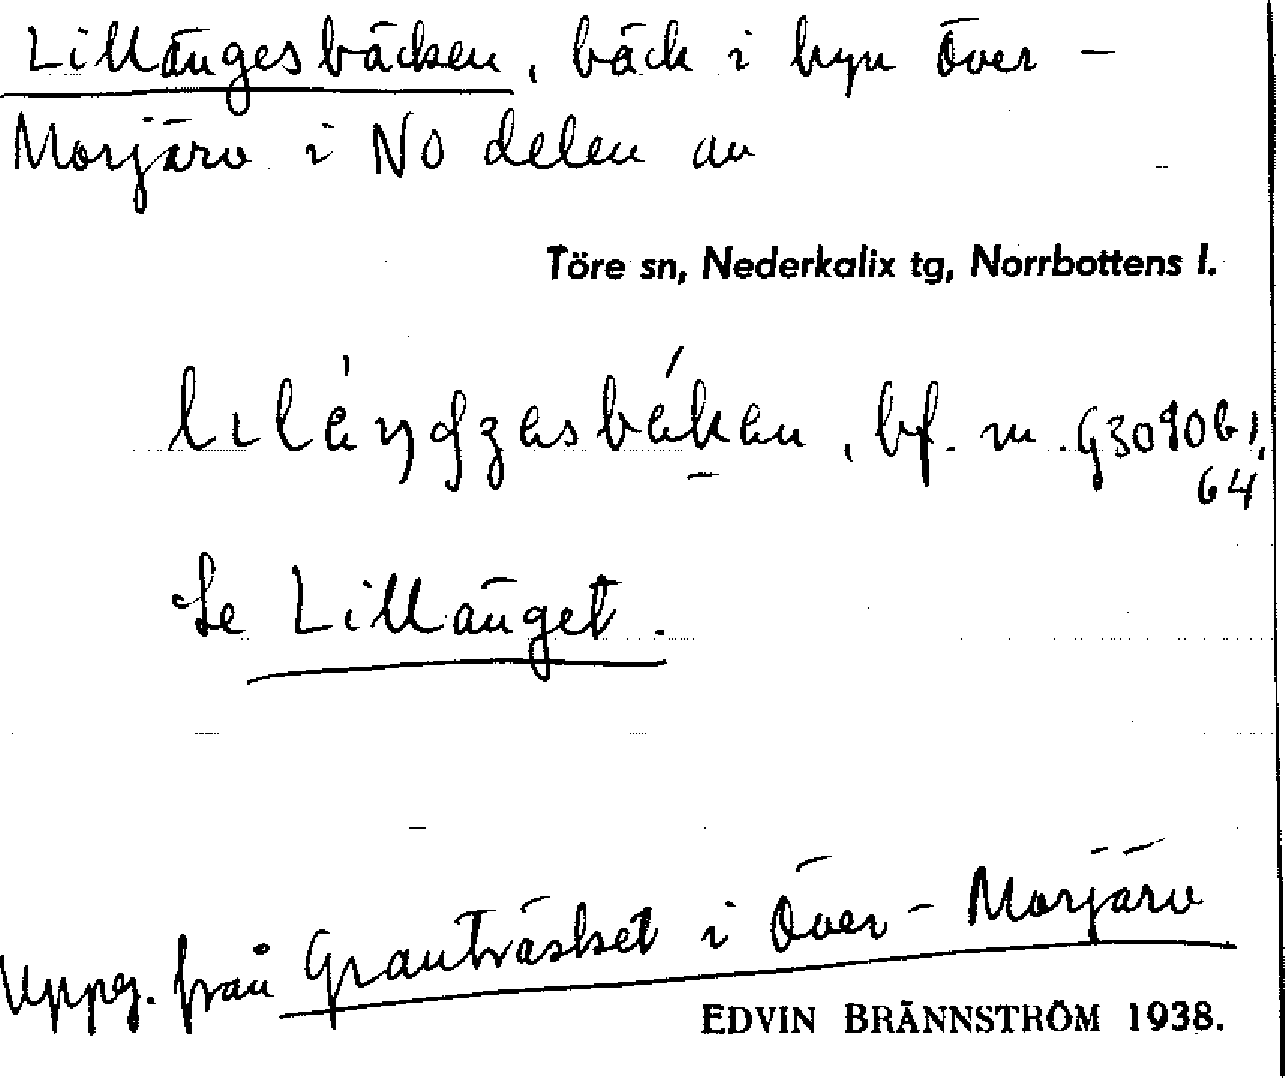 Lillängesbäcken, bäck i byn Över-
Morjärv i NO delen av
Töre sn, Nederkalix tg, Norrbottens l.
bf. m.
64
Se Lillänget.
Uppg. från Granträsket i Över-Morjärv
EDVIN BRÄNNSTRÖM 1938.